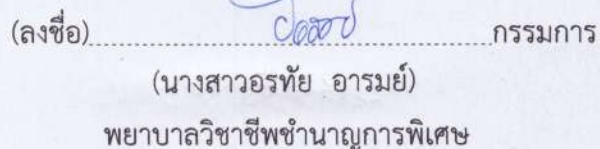 (ลงชื่อ)........................................กรรมการ
(นางสาวอรทัย อารมย์)
พยาบาลวิชาชีพชำนาญการพิเศษ